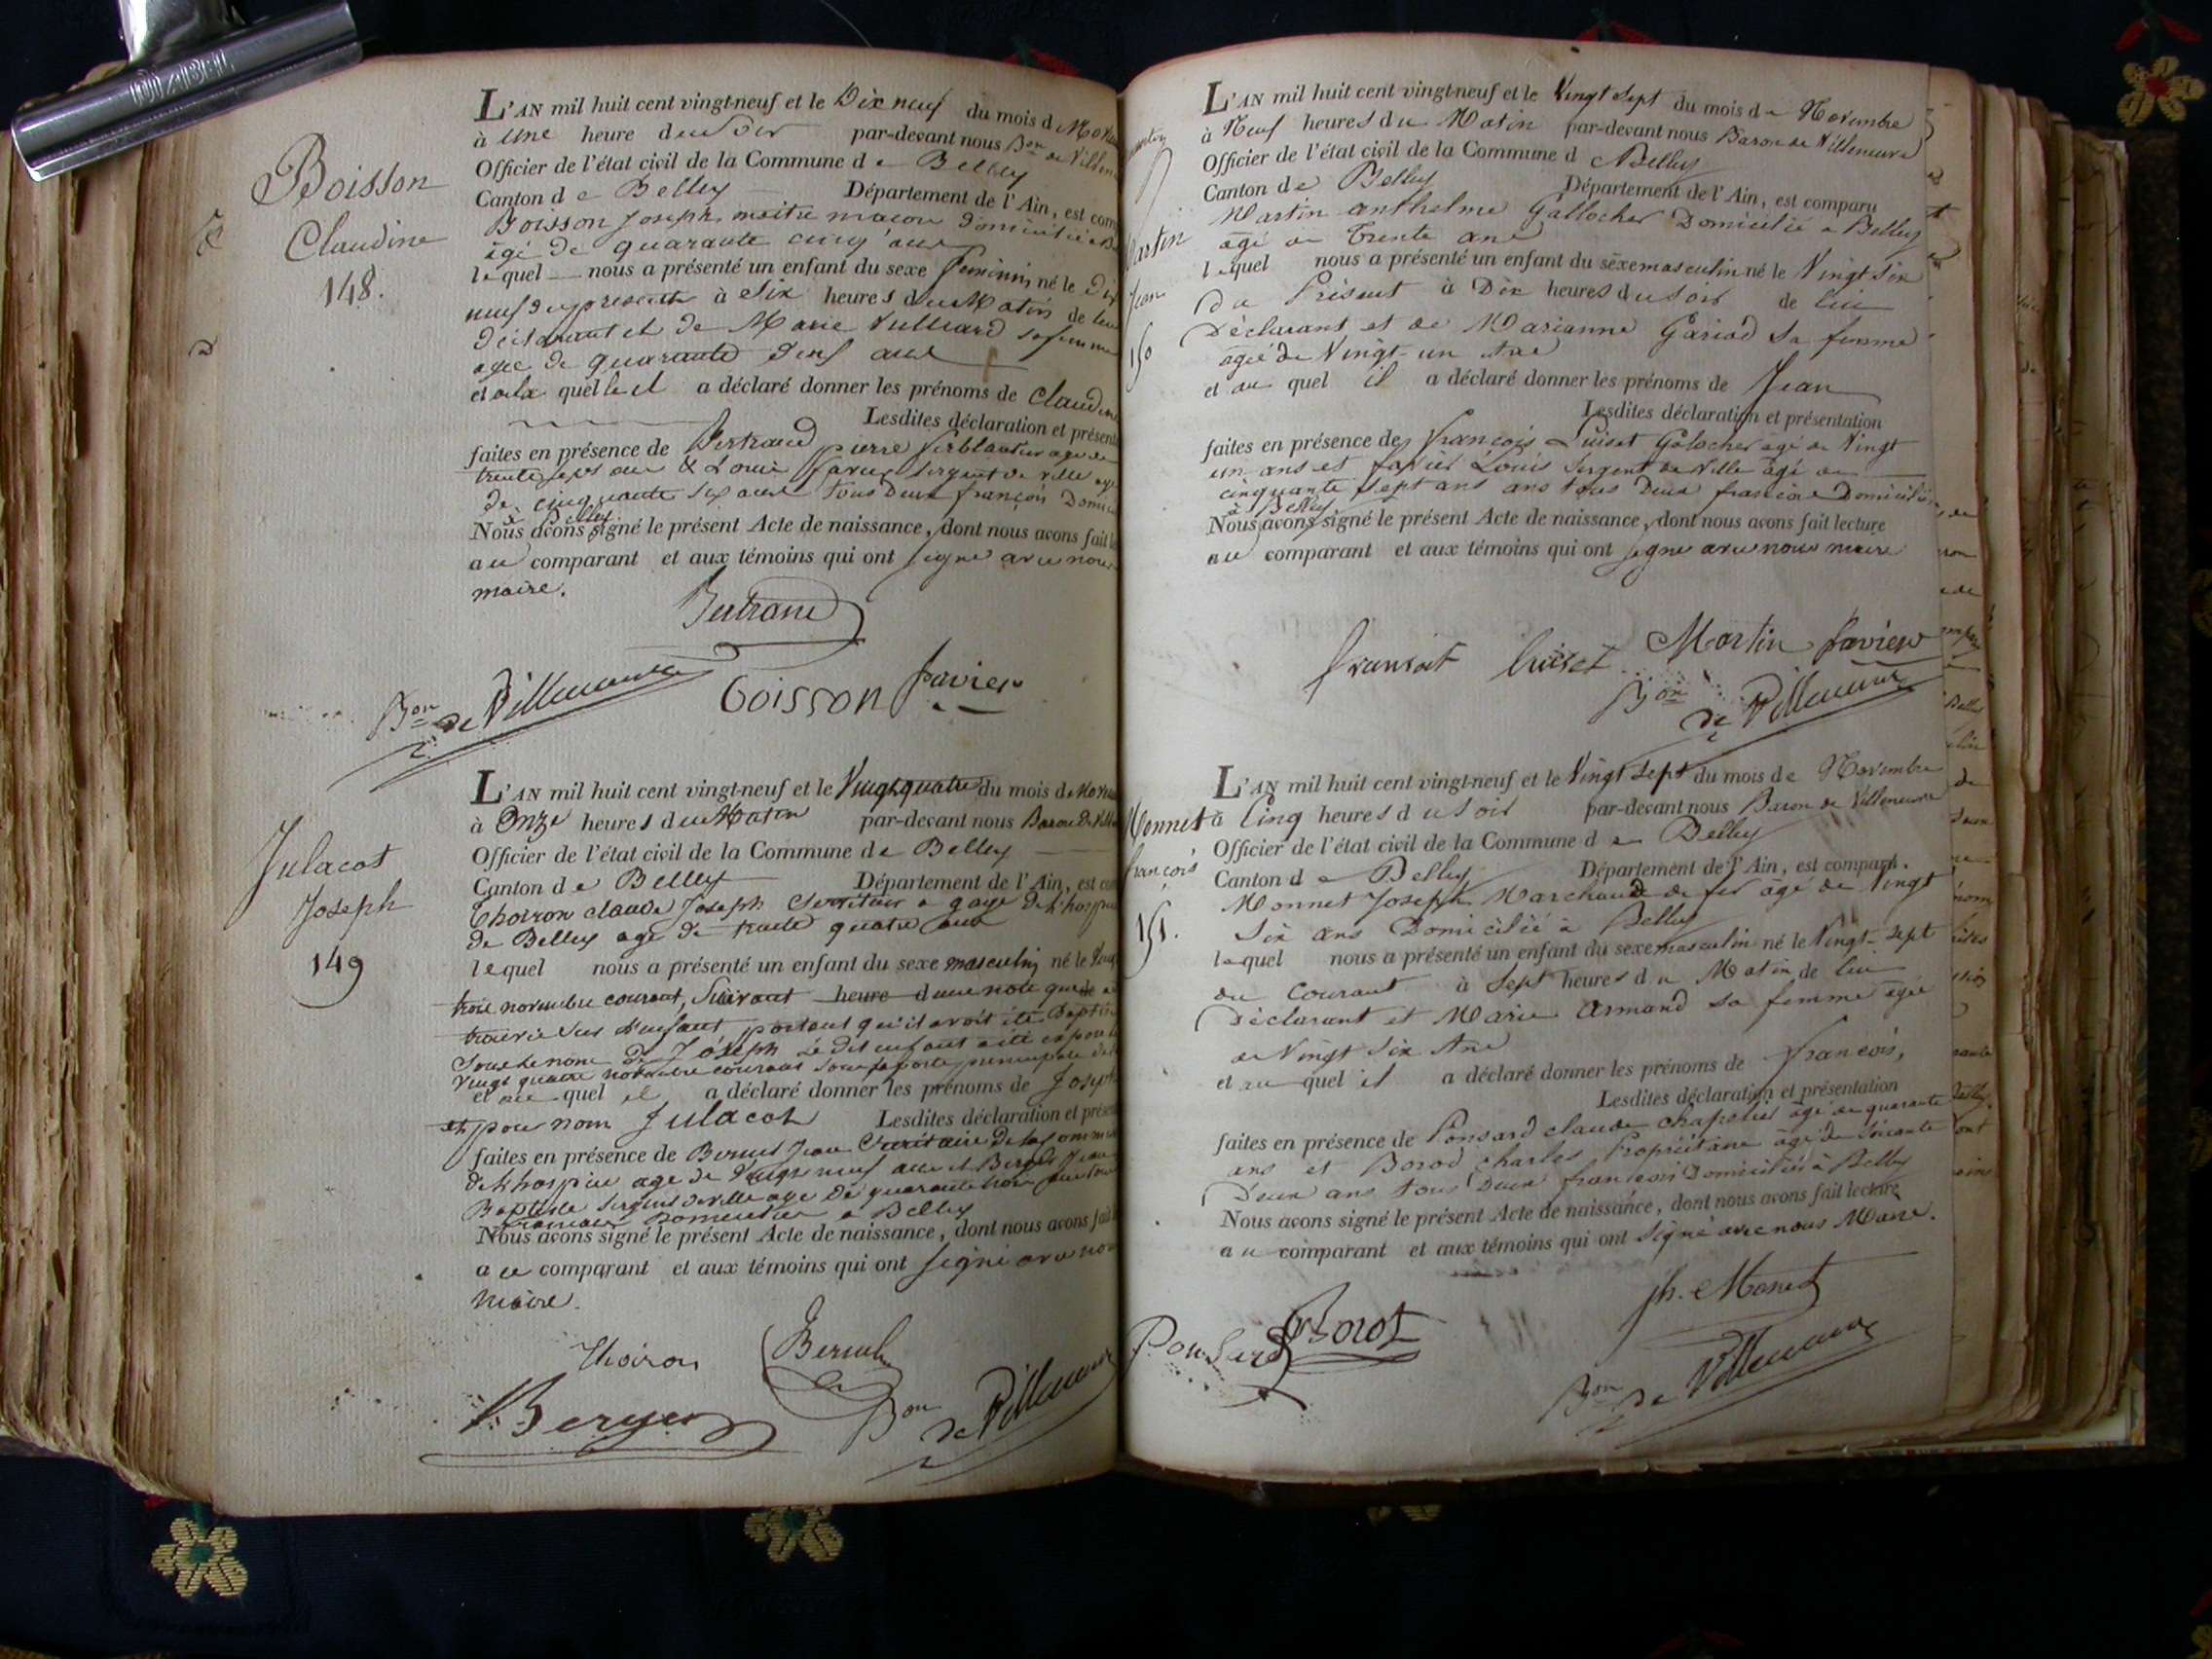 DIABEL
Boisson
Claudine
148.
L'AN mil huit cent vingt-neuf et le Dix neuf du mois d
à une heure du Soir par-devant nous Bon de
Officier de l'état civil de la Commune de Belley
Canton de Belley Département de l'Ain, est
Boisson Joseph maitre macon domicilié
agé de quarante cinq ans
lequel nous a présenté un enfant du sexe feminin né le
neuf du present à Six heures du Matin de
déclarant et de Marie Vulliard sa femme
agée de quarante deux ans
et à la quelle il a déclaré donner les prénoms de Claudine
Lesdites déclaration et
faites en présence de Bertrand pierre ferblantier agé de
trente sept ans & Louis favier Sergent de ville agé
de cinquante six ans tous deux françois
à Belley.
Nous avons signé le présent Acte de naissance, dont nous avons fait
au comparant et aux témoins qui ont signé avec nous
maire.
Bertrand
Bon de Villeneuve
Boisson
favier
Julacot
Joseph
149
L'AN mil huit cent vingt-neuf et le Vingt quatre du mois de
à Onze heures du Matin par-devant nous Baron de
Officier de l'état civil de la Commune de Belley
Canton de Belley Département de l'Ain, est
Thoiron claude Joseph Serviteur a gage de
de Belley agé de trente quatre ans
lequel nous a présenté un enfant du sexe masculin né le
trois novembre courant, Suivant heure d'une note
trouvée sur l'enfant portant qu'il avoit été
sous le nom de Joseph Le dit enfant a été exposé
Vingt quatre novembre courant sous la porte principale
et au quel il a déclaré donner les prénoms de Joseph
et pour nom Julacot Lesdites déclaration et
faites en présence de Jean Secrétaire de la
de l'hospice agé de Vingt neuf ans et Berger Jean
Baptiste Sergent de ville agé de quarante
francais Domicilier a Belley
Nous avons signé le présent Acte de naissance, dont nous avons fait
au comparant et aux témoins qui ont signé avec
maire.
Thoiron
Berger
Bon de Villeneuve
Martin
Jean
150
L'AN mil huit cent vingt-neuf et le Vingt Sept du mois de Novembre
à Neuf heures du Matin par-devant nous Baron de Villeneuve
Officier de l'état civil de la Commune d Belley
Canton de Belley Département de l'Ain, est comparu
Martin anthelme Gallocher Domicilié a Belley
agé de trente ans
lequel nous a présenté un enfant du sexe masculin né le Vingt Six
Du Présent à Dix heures du soir de lui
Déclarant et de Marianne Gariod Sa femme
agée de Vingt-un Ans
et au quel il a déclaré donner les prénoms de Jean
Lesdites déclaration et présentation
faites en présence de françois Luiset Galocher agé de Vingt
un ans et favier Louis Sergent de Ville agé de
cinquante sept ans ans tous Deux francois Domiciliés
à Belley
Nous avons signé le présent Acte de naissance, dont nous avons fait lecture
au comparant et aux témoins qui ont signé avec nous maire
fransoit luiset
Martin
favier
Bon de Villeneuve
Monnet
françois
151.
L'AN mil huit cent vingt-neuf et le Vingt Sept du mois de Novembre
à Cinq heures du Soir par-devant nous Baron de Villeneuve
Officier de l'état civil de la Commune de Belley
Canton de Belley Département de l'Ain, est comparu.
Monnet Joseph Marchand de fer agé de Vingt
Six ans Domicilié à Belley
lequel nous a présenté un enfant du sexe masculin né le Vingt-Sept
du Courant à Sept heures du Matin de lui
Déclarant et Marie Armand Sa femme agée
de Vingt Six Ans
et au quel il a déclaré donner les prénoms de françois,
Lesdites déclaration et présentation
faites en présence de Ponsard claude chapelier agé de quarante
ans et Borod Charles Propriétaire agé de Soixante
Deux ans tous Deux francois Domiciliés à Belley
Nous avons signé le présent Acte de naissance, dont nous avons fait lecture
au comparant et aux témoins qui ont Signé avec nous Maire.
Ponsard
Borot
Jh. Monet
Bon de Villeneuve